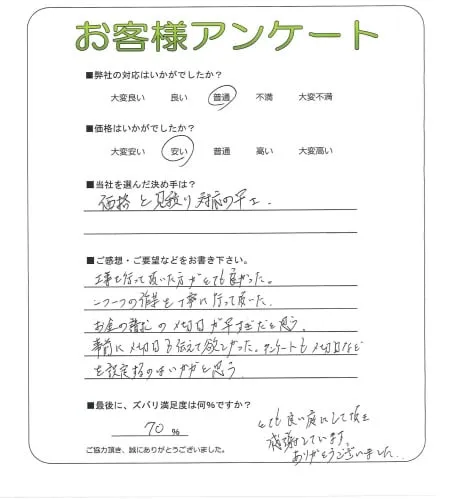 お客様アンケート
■弊社の対応はいかがでしたか？
大変良い 良い 普通 不満 大変不満
■価格はいかがでしたか？
大変安い 安い 普通 高い 大変高い
■当社を選んだ決め手は？
価格と見積り対応の早さ.
■ご感想・ご要望などをお書き下さい。
工事を行って頂いた方がとても良かった。
一つ一つの作業を丁寧に行って頂いた.
お金の振込の〆切日が早すぎだと思う.
事前に〆切日も伝えて欲しかった。アンケートも〆切日など
を設定するのはいかがと思う.
■最後に、ズバリ満足度は何%ですか？
70 %
とても良い庭にして頂き
感謝しています。
ありがとうございました.
ご協力頂き、誠にありがとうございました。